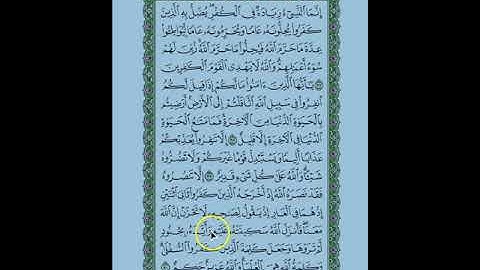 إِنَّمَا النَّسِيءُ زِيَادَةٌ فِي الْكُفْرِ يُضَلُّ بِهِ الَّذِينَ
كَفَرُوا يُحِلُّونَهُ عَامًا وَيُحَرِّمُونَهُ عَامًا لِيُوَاطِئُوا
عِدَّةَ مَا حَرَّمَ اللَّهُ فَيُحِلُّوا مَا حَرَّمَ اللَّهُ زُيِّنَ لَهُمْ
سُوءُ أَعْمَالِهِمْ وَاللَّهُ لَا يَهْدِي الْقَوْمَ الْكَافِرِينَ
يَا أَيُّهَا الَّذِينَ آمَنُوا مَا لَكُمْ إِذَا قِيلَ لَكُمُ
انْفِرُوا فِي سَبِيلِ اللَّهِ اثَّاقَلْتُمْ إِلَى الْأَرْضِ أَرَضِيتُمْ
بِالْحَيَاةِ الدُّنْيَا مِنَ الْآخِرَةِ فَمَا مَتَاعُ الْحَيَاةِ
الدُّنْيَا فِي الْآخِرَةِ إِلَّا قَلِيلٌ إِلَّا تَنْفِرُوا يُعَذِّبْكُمْ
عَذَابًا أَلِيمًا وَيَسْتَبْدِلْ قَوْمًا غَيْرَكُمْ وَلَا تَضُرُّوهُ
شَيْئًا وَاللَّهُ عَلَى كُلِّ شَيْءٍ قَدِيرٌ إِلَّا تَنْصُرُوهُ
فَقَدْ نَصَرَهُ اللَّهُ إِذْ أَخْرَجَهُ الَّذِينَ كَفَرُوا ثَانِيَ اثْنَيْنِ
إِذْ هُمَا فِي الْغَارِ إِذْ يَقُولُ لِصَاحِبِهِ لَا تَحْزَنْ إِنَّ اللَّهَ
مَعَنَا فَأَنْزَلَ اللَّهُ سَكِينَتَهُ عَلَيْهِ وَأَيَّدَهُ بِجُنُودٍ
لَمْ تَرَوْهَا وَجَعَلَ كَلِمَةَ الَّذِينَ كَفَرُوا السُّفْلَى
وَكَلِمَةُ اللَّهِ هِيَ الْعُلْيَا وَاللَّهُ عَزِيزٌ حَكِيمٌ